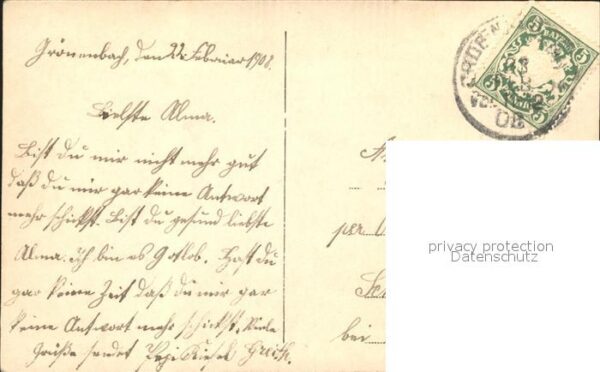 Grönenbach, den 22. Februar 1908.
Liebste Alma.
Bist du mir nicht mehr gut
daß du mir gar keine Antwort
mehr schickst. Bist du gesund liebste
Alma. ich bin es Gotlob. Hast du
gar keine Zeit daß du mir gar
keine Antwort mehr schickst, Viele
Grüße sendet
5 BAYERN 5
per
bei
privacy protection
Datenschutz